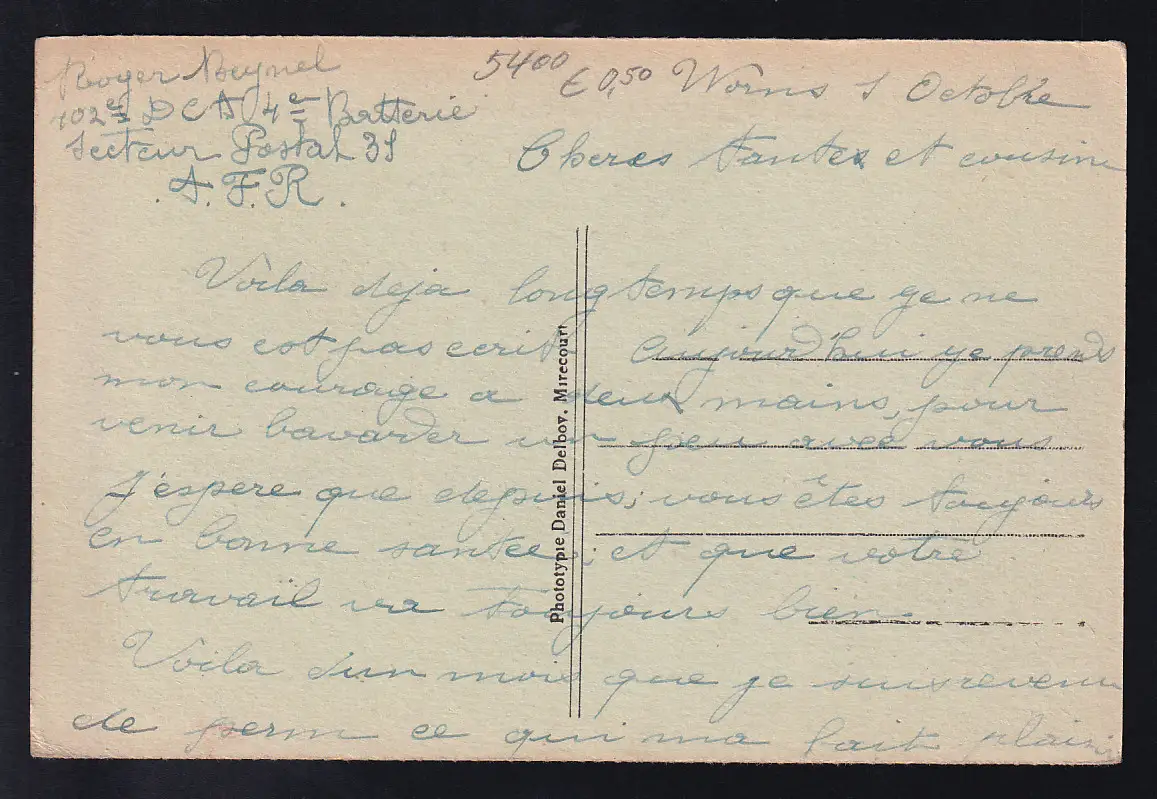 Roger Beynel
102e DCA 4e Batterie
Secteur Postal 31
A.F.R.
5400
€ 0,50
Worms 1 Octobre
Cheres tantes et cousine
Voila deja longtemps que ge ne
vous est pas ecrit aujourd'hui ge prends
mon courage a deux mains, pour
venir bavarder un peu avec vous
J'espere que depuis; vous êtes toujours
en bonne santee; et que votre
travail va toujours bien
Voila d'un mois que je suis revenu
de perm ce qui ma fait plaisi
Phototypie Daniel Delboy. Mirecourt